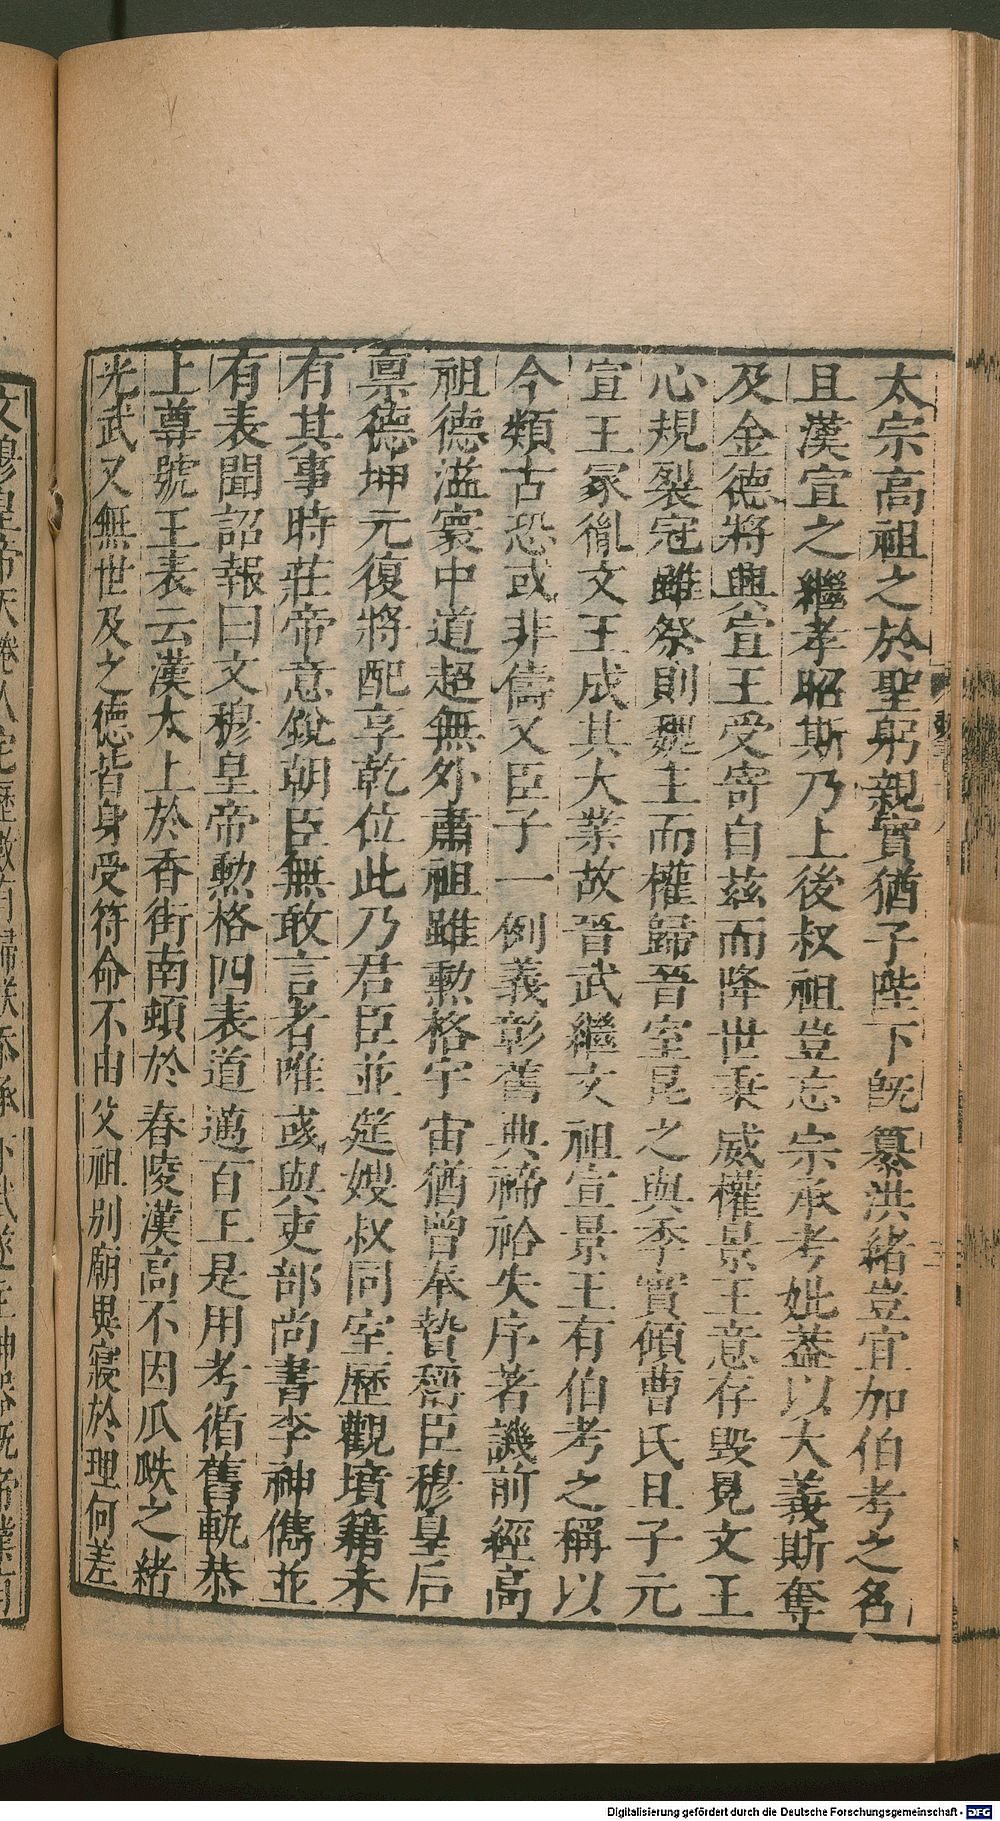 太宗高祖之於聖躬親實猶子陛下既纂洪緒豈宜加伯考之名
且漢宣之繼孝昭斯乃上後叔祖豈忘宗承考妣蓋以大義斯奪
及金德將興宣王受寄自茲而降世秉威權景王意存毀冕文王
心規裂冠雖祭則魏主而權歸晉室昆之與季實傾曹氏且子元
宣王冢胤文王成其大業故晉武繼文祖宣景王有伯考之稱以
今類古恐或非儔又臣子一例義彰舊典禘祫失序著譏前經高
祖德溢寰中道超無外肅祖雖勲格宇宙猶曾奉贄稱臣穆皇后
禀德坤元復將配享乾位此乃君臣並筵嫂叔同室歷觀墳籍未
有其事時莊帝意銳朝臣無敢言者唯彧與吏部尚書李神儁並
有表聞詔報曰文穆皇帝勲格四表道邁百王是用考循舊軌恭
上尊號王表云漢太上於香街南頓於春陵漢高不因瓜瓞之緒
光武又無世及之德皆身受符命不由父祖別廟異寢於理何差
Digitalisierung gefördert durch die Deutsche Forschungsgemeinschaft - DFG